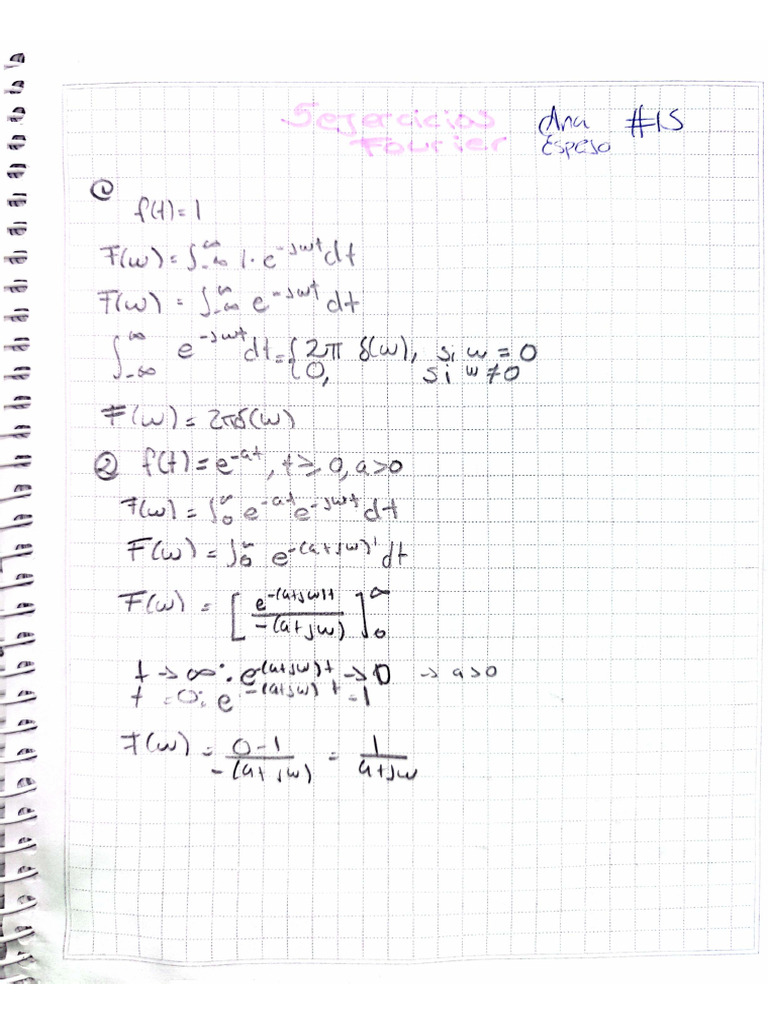 5 ejercicios Fourier
Ana Espeso #15
①
f(t) = 1
F(w) = ∫_{-∞}^{∞} 1 · e^{-jwt} dt
F(w) = ∫_{-∞}^{∞} e^{-jwt} dt
∫_{-∞}^{∞} e^{-jwt} dt = { 2π δ(w), si w = 0
{ 0, si w ≠ 0
F(w) = 2πδ(w)
② f(t) = e^{-at}, t ≥ 0, a > 0
F(w) = ∫_0^{∞} e^{-at} e^{-jwt} dt
F(w) = ∫_0^{∞} e^{-(a+jw)t} dt
F(w) = [ e^{-(a+jw)t} / -(a+jw) ]_0^{∞}
t → ∞: e^{(a+jw)t} → 0 → a > 0
t = 0: e^{-(a+jw)t} = 1
F(w) = 0-1 / -(a+jw) = 1 / a+jw